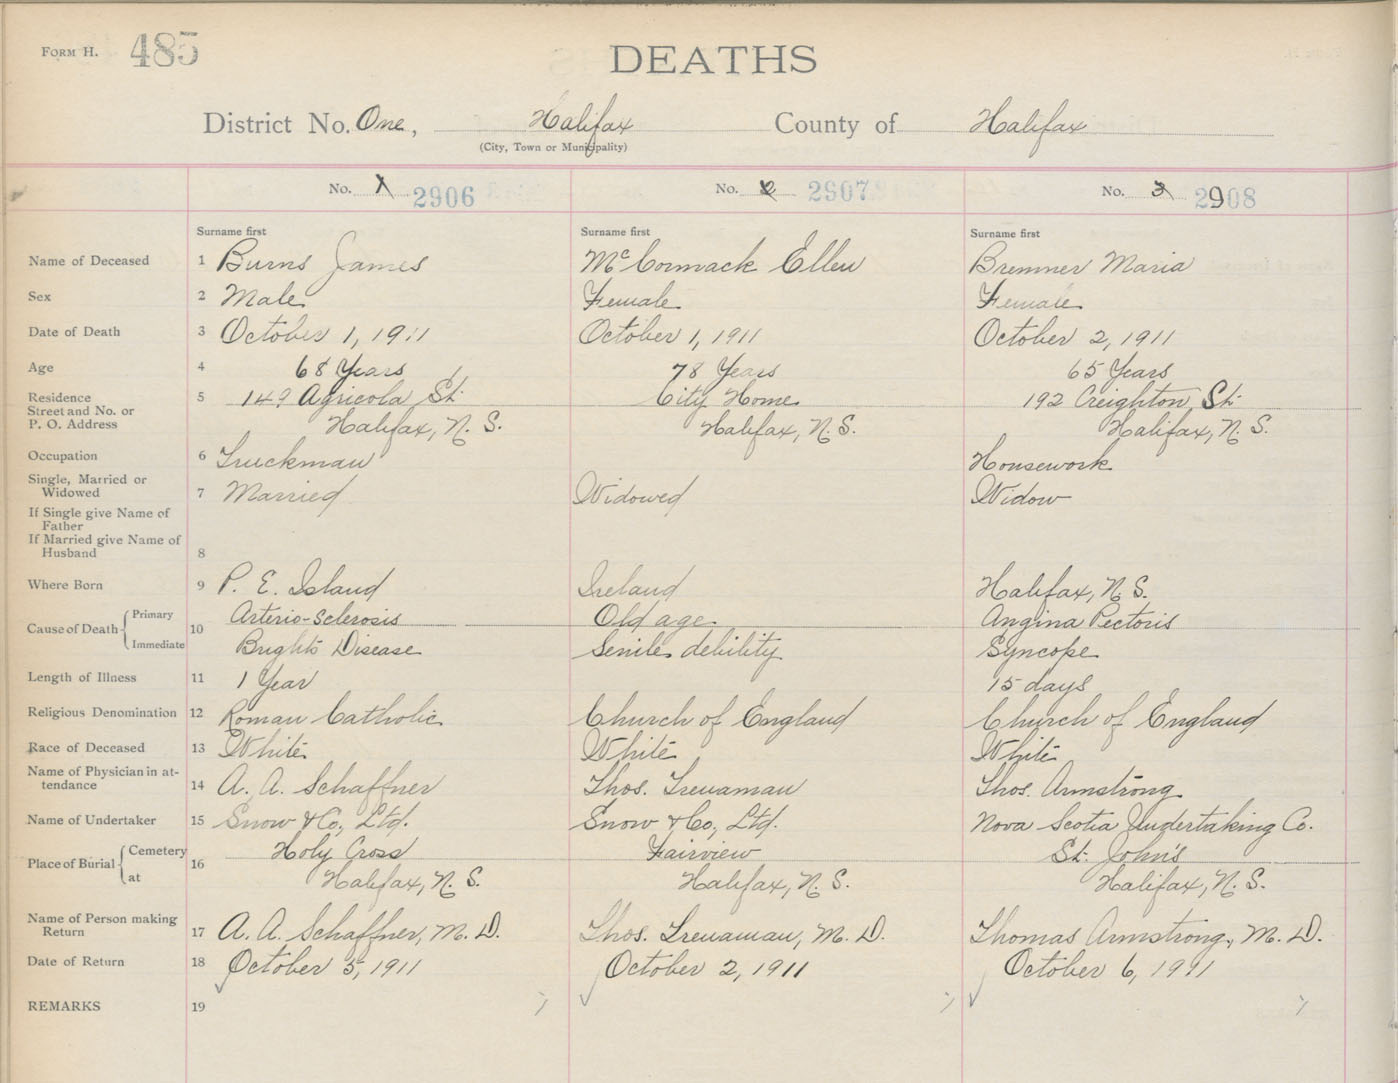 FORM H. 485
DEATHS
District No. One, Halifax County of Halifax
(City, Town or Municipality)
No. 1 2906 No. 2 2907 No. 3 2908
Surname first Surname first Surname first
Name of Deceased 1 Burns James McCormack Ellen Bremner Maria
Sex 2 Male Female Female
Date of Death 3 October 1, 1911 October 1, 1911 October 2, 1911
Age 4 68 Years 78 Years 65 Years
Residence 5 149 Agricola St. City Home 192 Creighton St.
Street and No. or
P. O. Address Halifax, N. S. Halifax, N. S. Halifax, N. S.
Occupation 6 Truckman Housework
Single, Married or
Widowed 7 Married Widowed Widow
If Single give Name of
Father
If Married give Name of
Husband 8
Where Born 9 P. E. Island Ireland Halifax, N. S.
Cause of Death Primary 10 Arterio-Sclerosis Old age Angina Pectoris
Immediate Brights Disease Senile debility Syncope
Length of Illness 11 1 Year 15 days
Religious Denomination 12 Roman Catholic Church of England Church of England
Race of Deceased 13 White White White
Name of Physician in at-
tendance 14 A. A. Schaffner Thos. Trenaman Thos. Armstrong
Name of Undertaker 15 Snow & Co, Ltd. Snow & Co, Ltd. Nova Scotia Undertaking Co.
Place of Burial Cemetery 16 Holy Cross Fairview St. John's
at Halifax, N. S. Halifax, N. S. Halifax, N. S.
Name of Person making
Return 17 A. A. Schaffner, M. D. Thos. Trenaman, M. D. Thomas Armstrong, M. D.
Date of Return 18 October 5, 1911 October 2, 1911 October 6, 1911
REMARKS 19